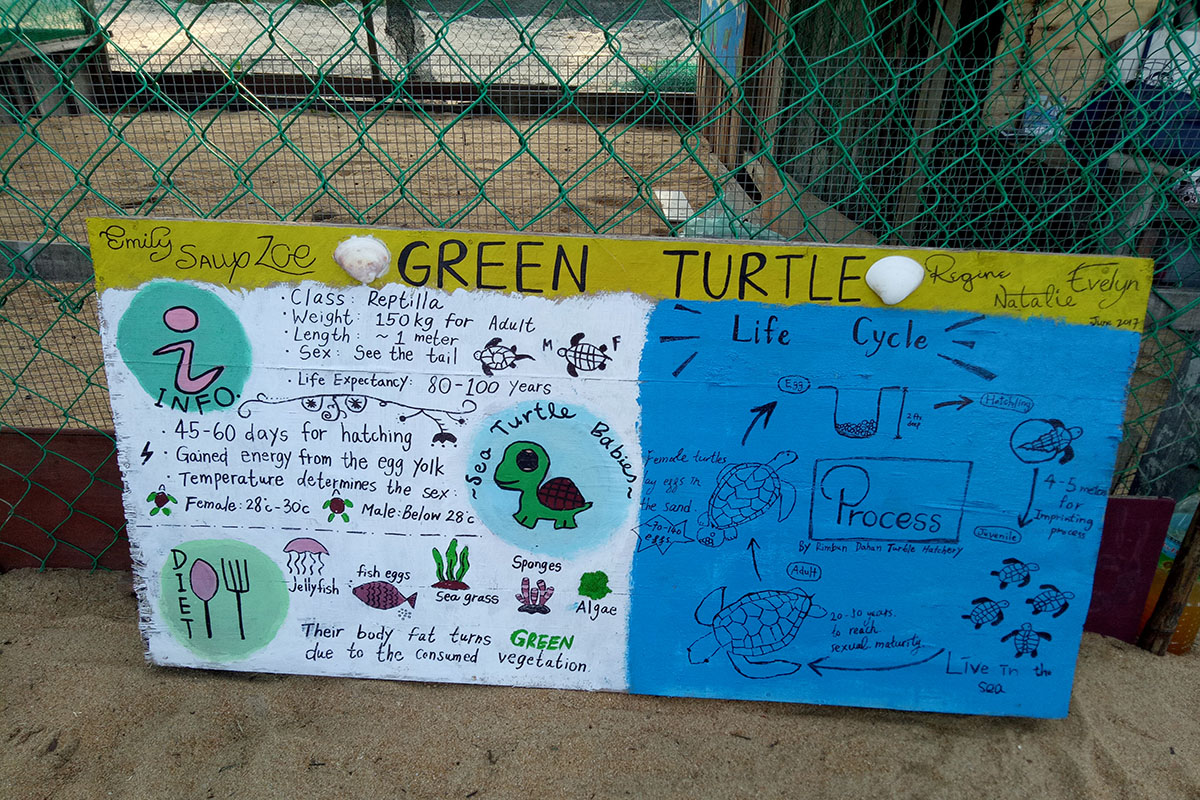 Emily Saup Zoe
GREEN TURTLE
Regine
Natalie
Evelyn
June 2017
INFO.
· Class: Reptilla
· Weight: 150 kg for Adult
· Length: ~ 1 meter
· Sex: See the tail
M F
· Life Expectancy: 80-100 Years
· 45-60 days for hatching
· Gained energy from the egg yolk
· Temperature determines the sex:
Female: 28°c-30c
Male: Below 28°c
~Sea Turtle Babies~
DIET
Jellyfish
fish eggs
Sea grass
Sponges
Algae
Their body fat turns GREEN
due to the consumed vegetation.
Life Cycle
Egg
deep
Hatchling
4-5 meters
for
Imprinting
process
Juvenile
Live in the
sea
20-30 years.
to reach
sexual maturity
Adult
Female turtles
lay eggs in
the sand.
70-140
eggs
Process
By Rimbun Dahan Turtle Hatchery